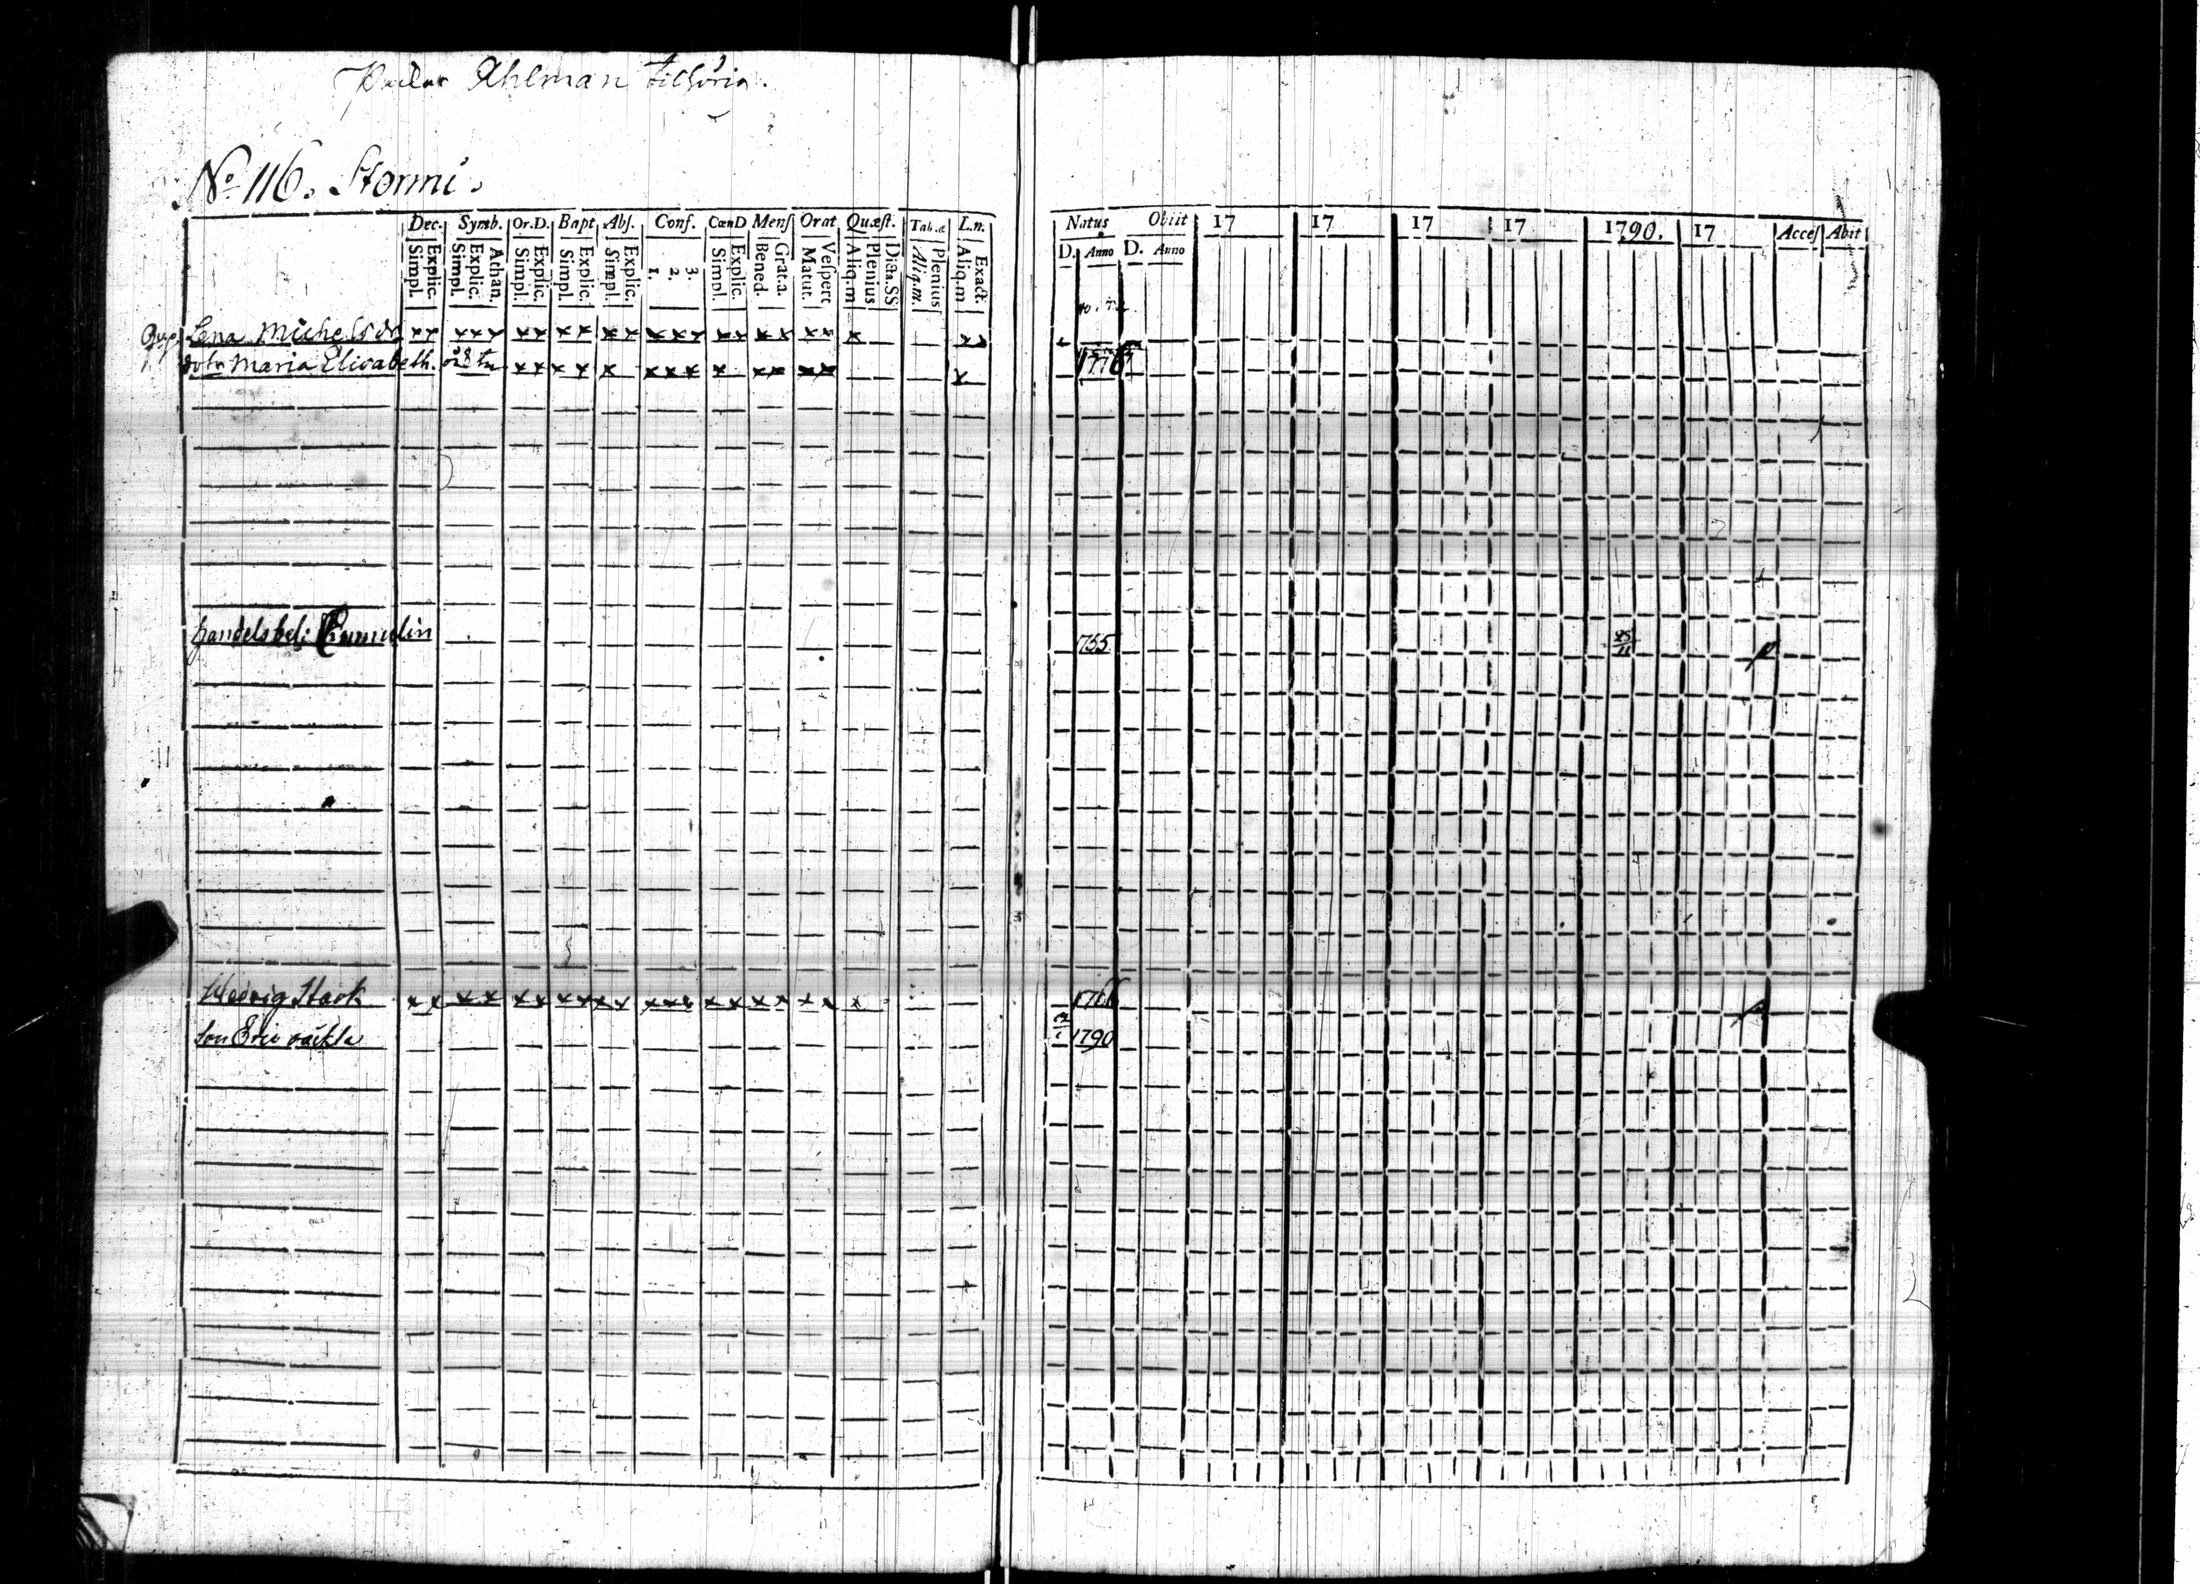 Ahlman tilhörig.
No 116. Stormi.
Dec. Symb. Or.D. Bapt Abs. Conf. CœnD Mens Orat Quæst. Tab.æ L.n.
Simpl. Explic. Simpl. Explic. Athan. Simpl. Explic. Simpl. Explic. Simpl. Explic. 1. 2. 3. Simpl. Explic. Bened. Grat.a. Matut. Vespert Aliq.m Plenius Dicta.SS Aliq.m. Plenius Aliq.m Exact.
Natus Obiit 17 17 17 17 1790. 17 Acces Abit
D. Anno D. Anno
Lena Michelsdr x x x x x x x x x x x x x x x x x x x x x
dotr Maria Elisabeth. x x x x x x x x x x x x x x
handelsbetj: 1755 25/11
Hedvig Stark x x x x x x x x x x x x x x x x x x x x 1766
son Eric oäkta 1790